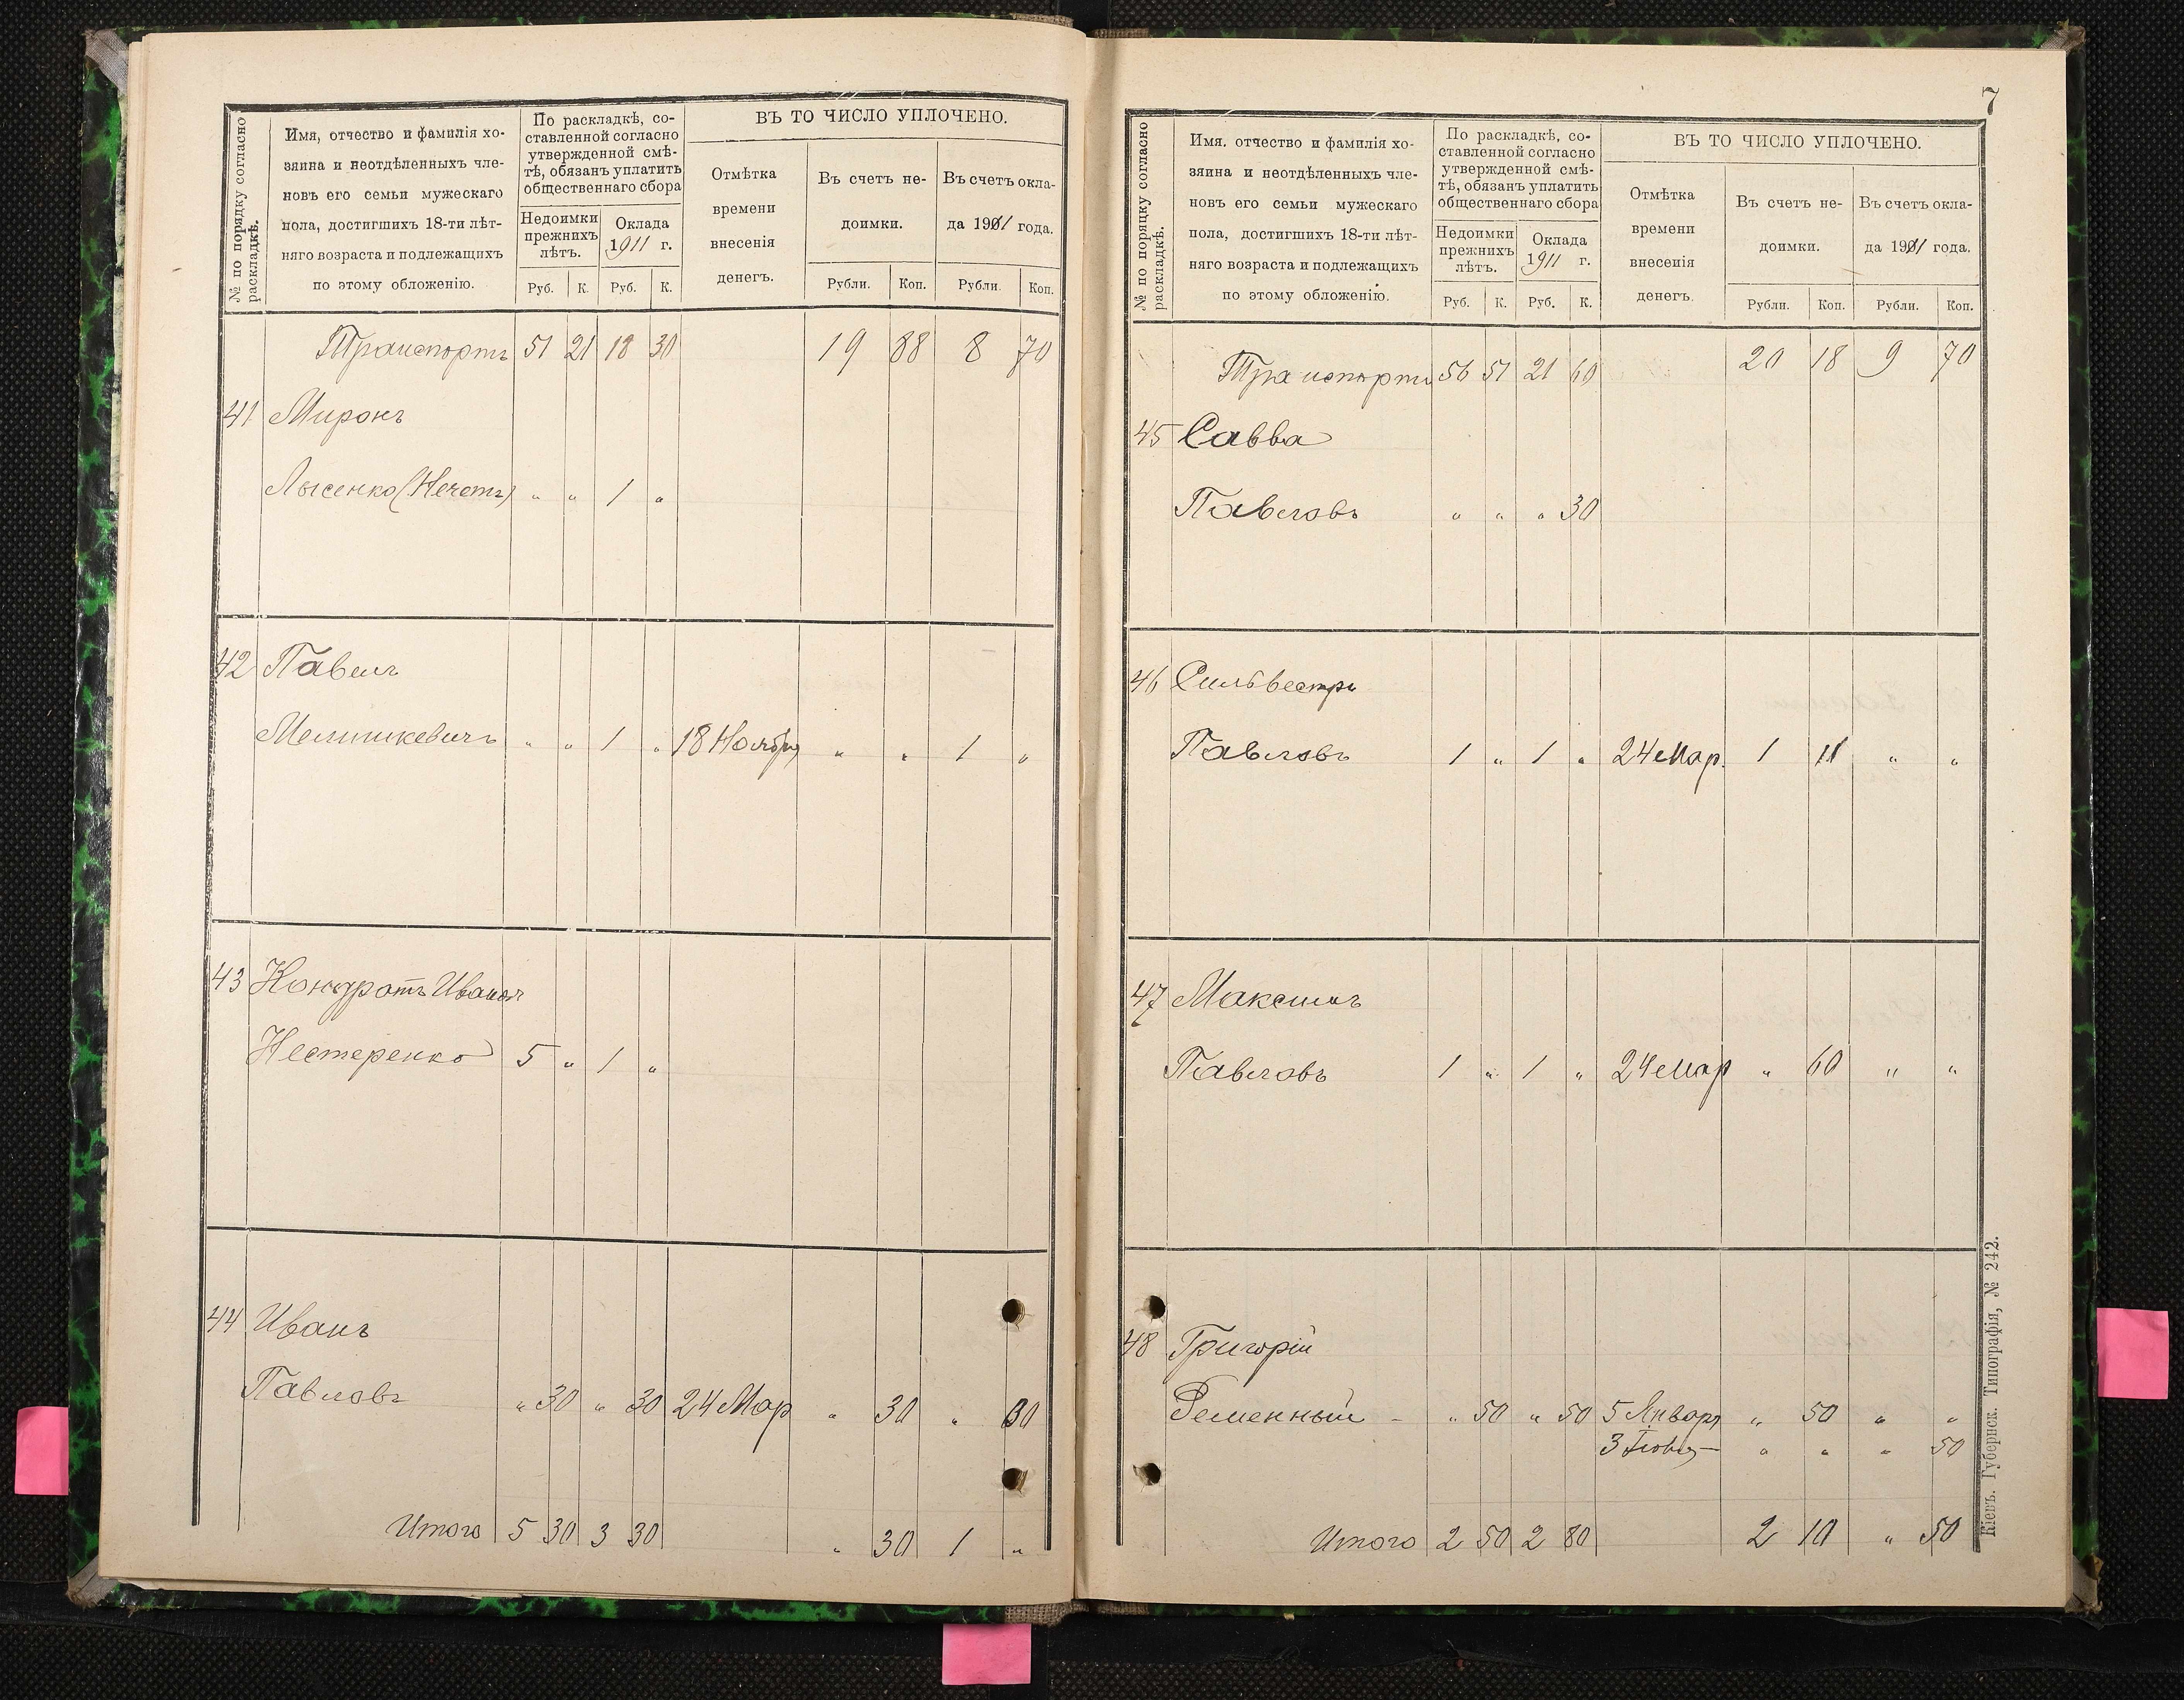 № по порядку согласно
раскладкѣ.
Имя, отчество и фамилія хо-
зяина и неотдѣленныхъ чле-
новъ его семьи мужескаго
пола, достигшихъ 18-ти лѣт-
няго возраста и подлежащихъ
по этому обложенію.
По раскладкѣ, со-
ставленной согласно
утвержденной смѣ-
тѣ, обязанъ уплатить
общественнаго сбора
Недоимки
прежнихъ
лѣтъ.
Оклада
1911 г.
Руб. К. Руб. К.
ВЪ ТО ЧИСЛО УПЛОЧЕНО.
Отмѣтка
времени
внесенія
денегъ.
Въ счетъ не-
доимки.
Въ счетъ окла-
да 1911 года.
Рубли. Коп. Рубли. Коп.
Транспортъ 51 21 18 30 19 88 8 70
41 Миронъ
Лысенко (Нечетъ) " " 1 "
42 Павелъ
" " 1 " 18 Ноября " " 1 "
43 Кондратъ Ивановъ
Нестеренко 5 " 1 "
44 Иванъ
Павловъ " 30 " 30 24 Мар " 30 "
Итого 5 30 3 30 " 30 1 "
7
№ по порядку согласно
раскладкѣ.
Имя. отчество и фамилія хо-
зяина и неотдѣленныхъ чле-
новъ его семьи мужескаго
пола, достигшихъ 18-ти лѣт-
няго возраста и подлежащихъ
по этому обложенію.
По раскладкѣ, со-
ставленной согласно
утвержденной смѣ-
тѣ, обязанъ уплатить
общественнаго сбора
Недоимки
прежнихъ
лѣтъ.
Оклада
1911 г.
Руб. К. Руб. К.
ВЪ ТО ЧИСЛО УПЛОЧЕНО.
Отмѣтка
времени
внесенія
денегъ.
Въ счетъ не-
доимки.
Въ счетъ окла-
да 1911 года.
Рубли. Коп. Рубли. Коп.
Транспортъ 56 51 21 60 20 18 9 70
45 Савва
Павловъ " " " 30
46 Сильвестръ
Павловъ 1 " 1 " 24 Мар. 1 " "
47 Максимъ
Павловъ 1 " 1 " 24 Мар " 60 " "
48 Григорій
Ременный - " 50 " 50 5 Января " 50 " "
" " " 50
Итого 2 50 2 80 2 10 " 50
Кіевъ. Губернск. Типографія, № 242.